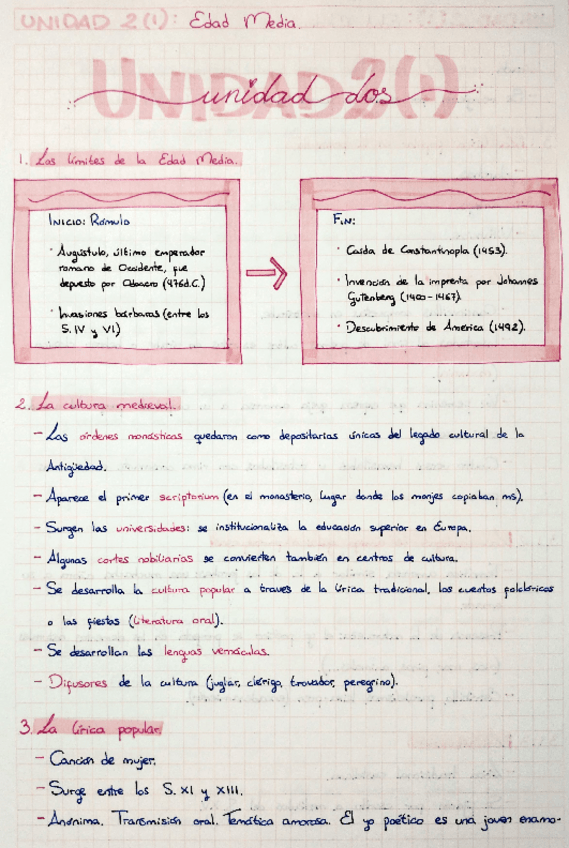 UNIDAD 2(1): Edad Media.
UNIDAD 2(1)
unidad dos
1. Los límites de la Edad Media.
INICIO: Rómulo
· Augústulo, último emperador
romano de Occidente, fue
depuesto por Odoacro (476d.C.)
· Invasiones bárbaras (entre los
S. IV y VI)
FIN:
· Caída de Constantinopla (1453).
· Invención de la imprenta por Johannes
Gutenberg (1400-1467).
· Descubrimiento de América (1492).
2. La cultura medieval.
- Las órdenes monásticas quedaron como depositarias únicas del legado cultural de la
Antigüedad.
- Aparece el primer scriptorium (en el monasterio, lugar donde los monjes copiaban ms).
- Surgen las universidades: se institucionaliza la educación superior en Europa.
- Algunas cortes nobiliarias se convierten también en centros de cultura.
- Se desarrolla la cultura popular a través de la lírica tradicional, los cuentos folclóricos
o las fiestas (literatura oral).
- Se desarrollan las lenguas vernáculas.
- Difusores de la cultura (juglar, clérigo, trovador, peregrino).
3. La lírica popular.
- Canción de mujer.
- Surge entre los S. XI y XIII.
- Anónima. Transmisión oral. Temática amorosa. El yo poético es una joven enamo-